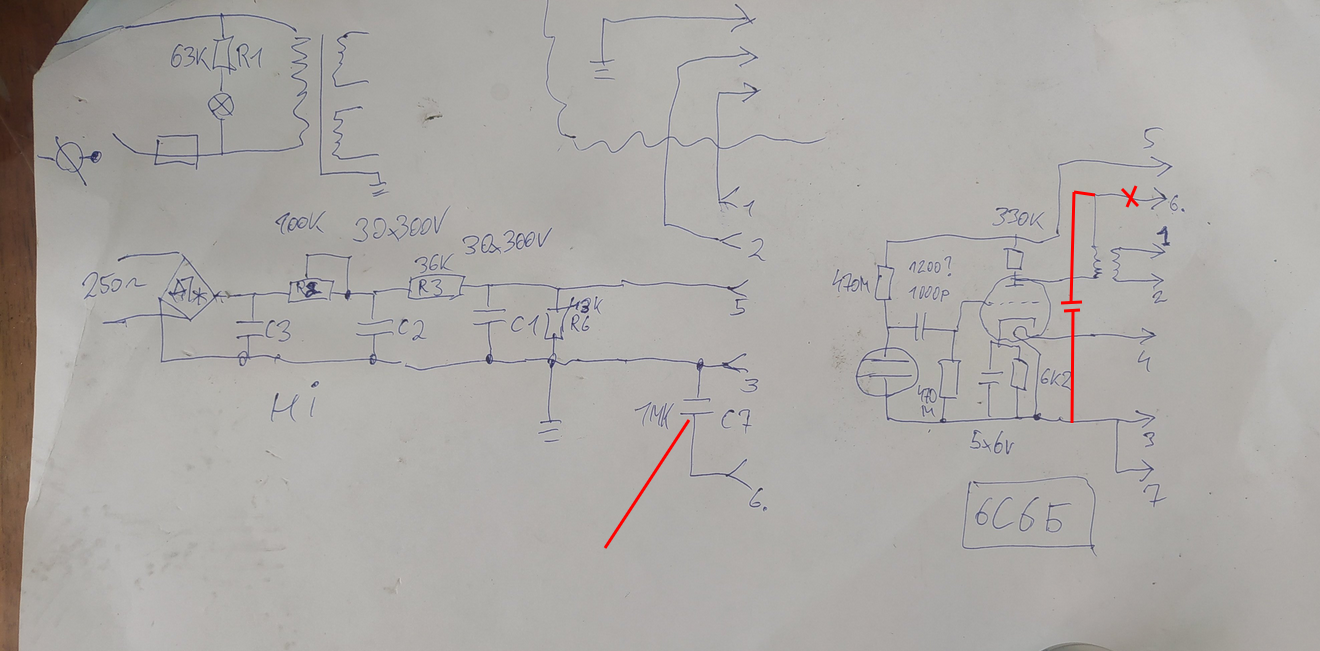 63K R1
5
6.
1
2
4
3
7
330K
1200?
1000P
470M
6K2
470
M
5x6V
6С6Б
1
2
100K 30x300V
30x300V
250~
36K
R3
C3
C2
C1
R6
5
3
1MK C7
6.